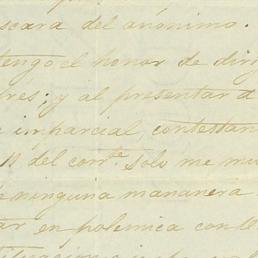 scara del anónimo.
tengo el honor de dirij
rés; y al presentar a
imparcial, contestan
del corr.te Solo me mu
ninguna mananera
ar en polémica con el